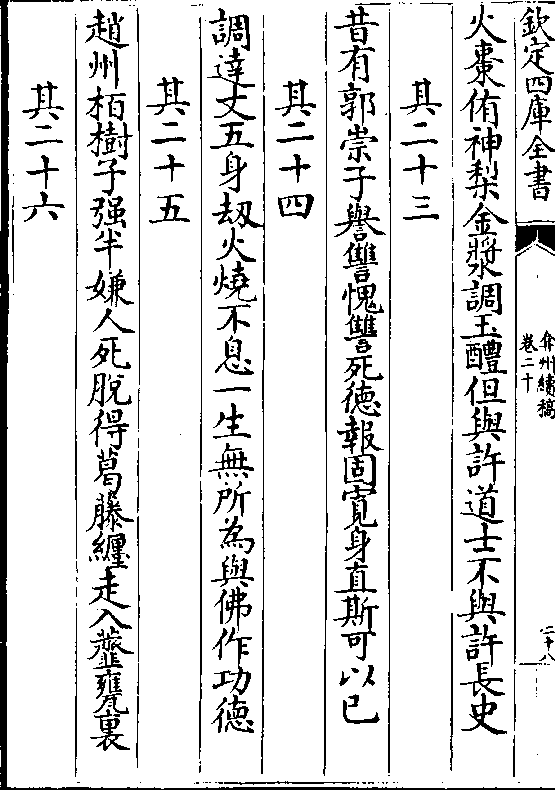 欽定四庫全書
弇州續稿
卷二十
二十八
火棗侑神梨金漿調玉醴但與許道士不與許長史
其二十三
昔有郭崇子譽讐愧讐死德報固寛身直斯可以已
其二十四
調達丈五身刼火燒不息一生無所為與佛作功德
其二十五
趙州栢樹子强半嫌人死脫得葛藤纒走入虀甕裏
其二十六